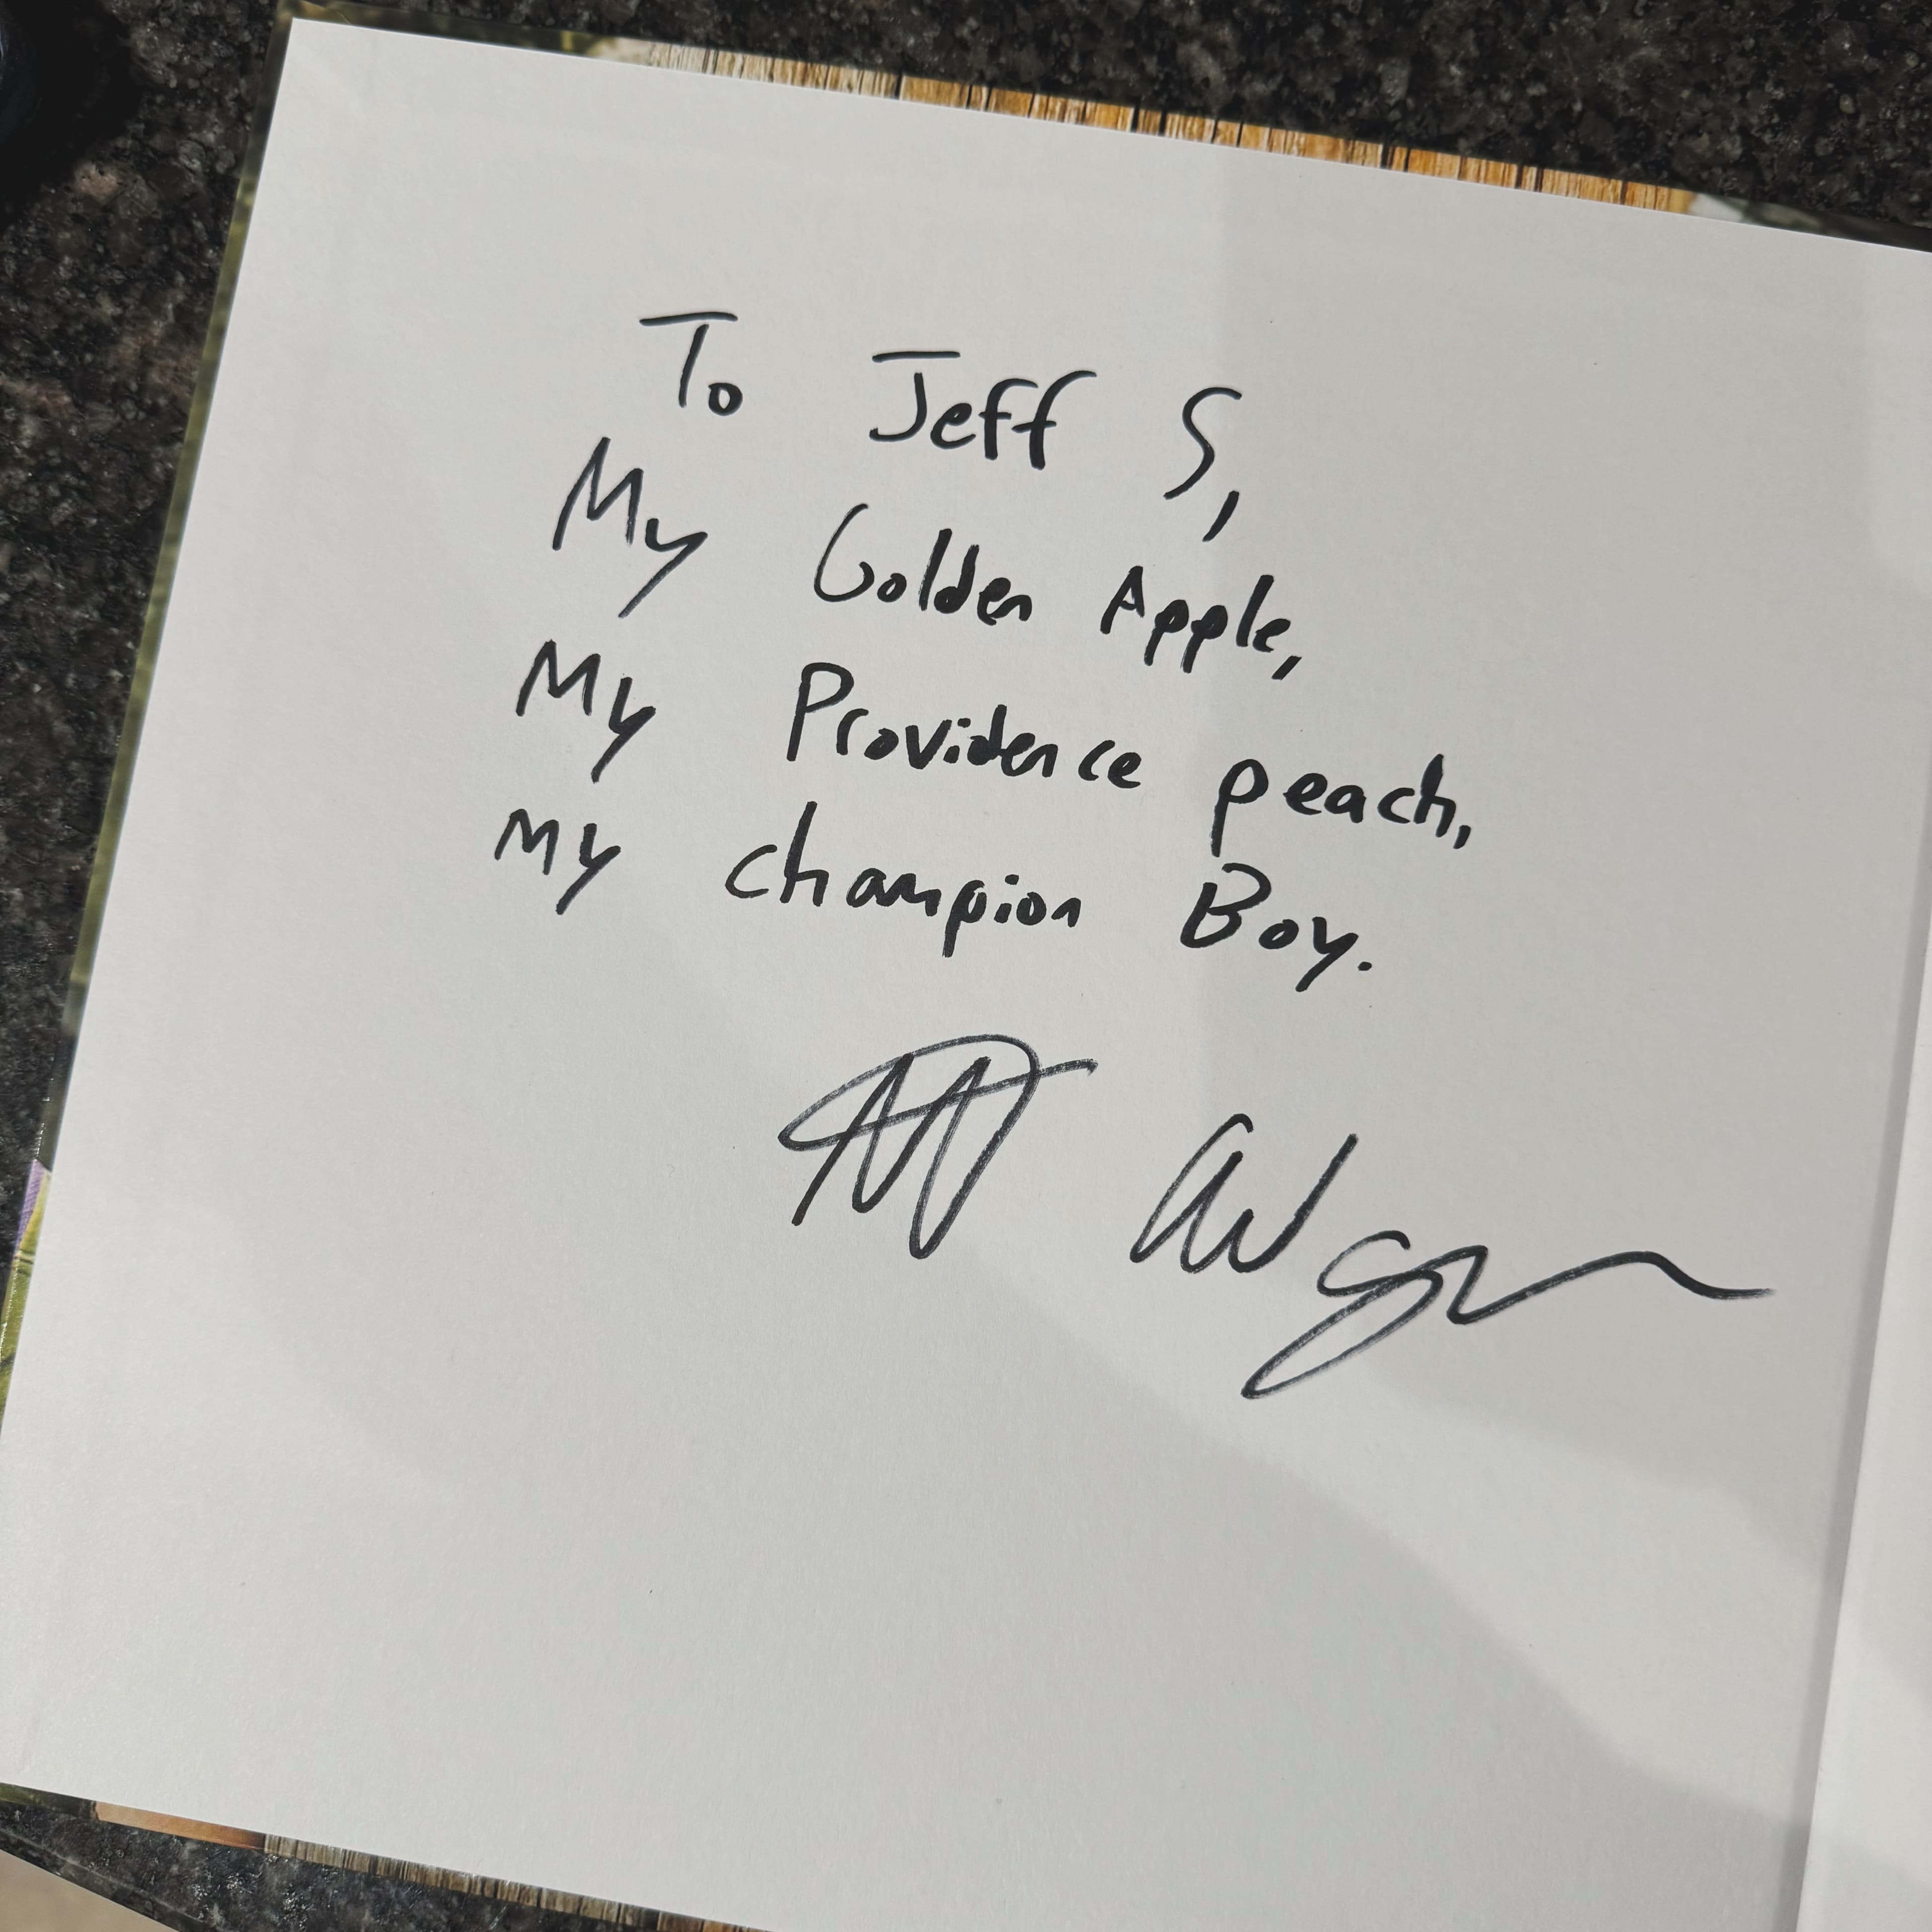 To Jeff S,
My Golden Apple,
My Providence peach,
My champion Boy.